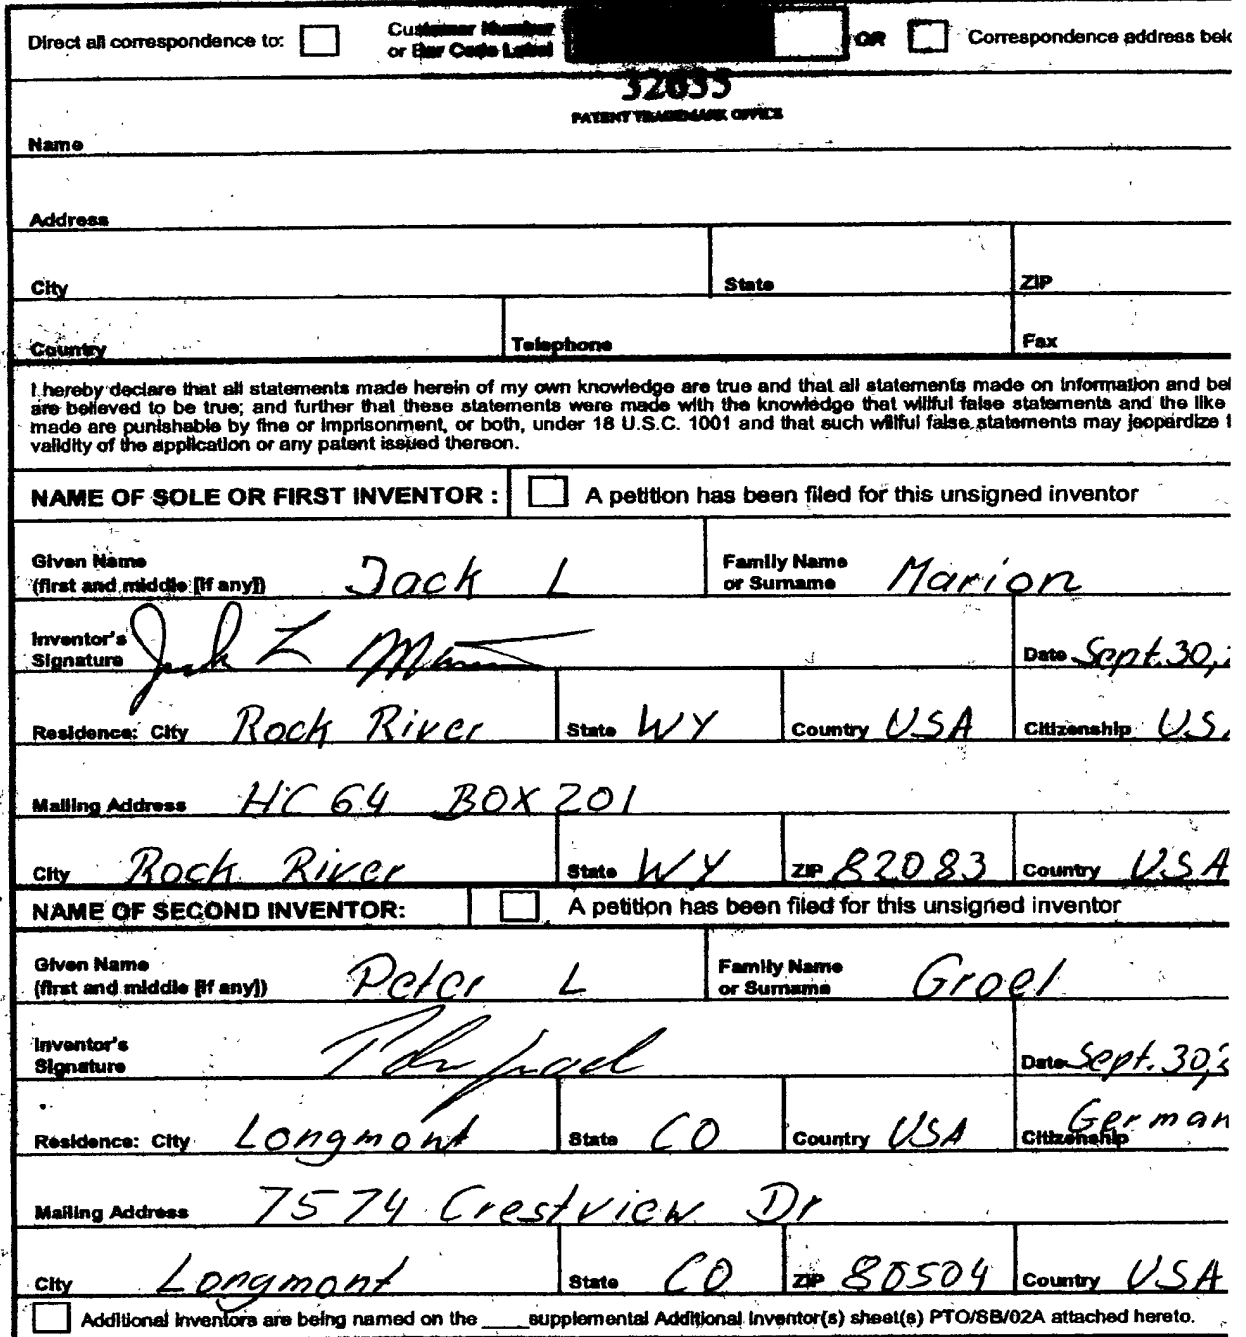 Direct all correspondence to: Customer Number or Bar Code Label OR Correspondence address
32635
PATENT TRADEMARK OFFICE
Name
Address
City State ZIP
Country Telephone Fax
I hereby declare that all statements made herein of my own knowledge are true and that all statements made on information and
are believed to be true; and further that these statements were made with the knowledge that willful false statements and the like
made are punishable by fine or imprisonment, or both, under 18 U.S.C. 1001 and that such willful false statements may jeopardize
validity of the application or any patent issued thereon.
NAME OF SOLE OR FIRST INVENTOR : A petition has been filed for this unsigned inventor
Given Name (first and middle [if any]) Jack L Family Name or Surname Marion
Inventor's Signature Jack L Date Sept. 30,
Residence: City Rock River State WY Country USA Citizenship US
Mailing Address HC 64 BOX 201
City Rock River State WY ZIP 82083 Country USA
NAME OF SECOND INVENTOR: A petition has been filed for this unsigned inventor
Given Name (first and middle [if any]) Peter L Family Name or Surname Groel
Inventor's Signature Date Sept. 30,
Residence: City Longmont State CO Country USA Citizenship German
Mailing Address 7574 Crestview Dr
City Longmont State CO ZIP 80504 Country USA
Additional inventors are being named on the ____supplemental Additional Inventor(s) sheet(s) PTO/SB/02A attached hereto.